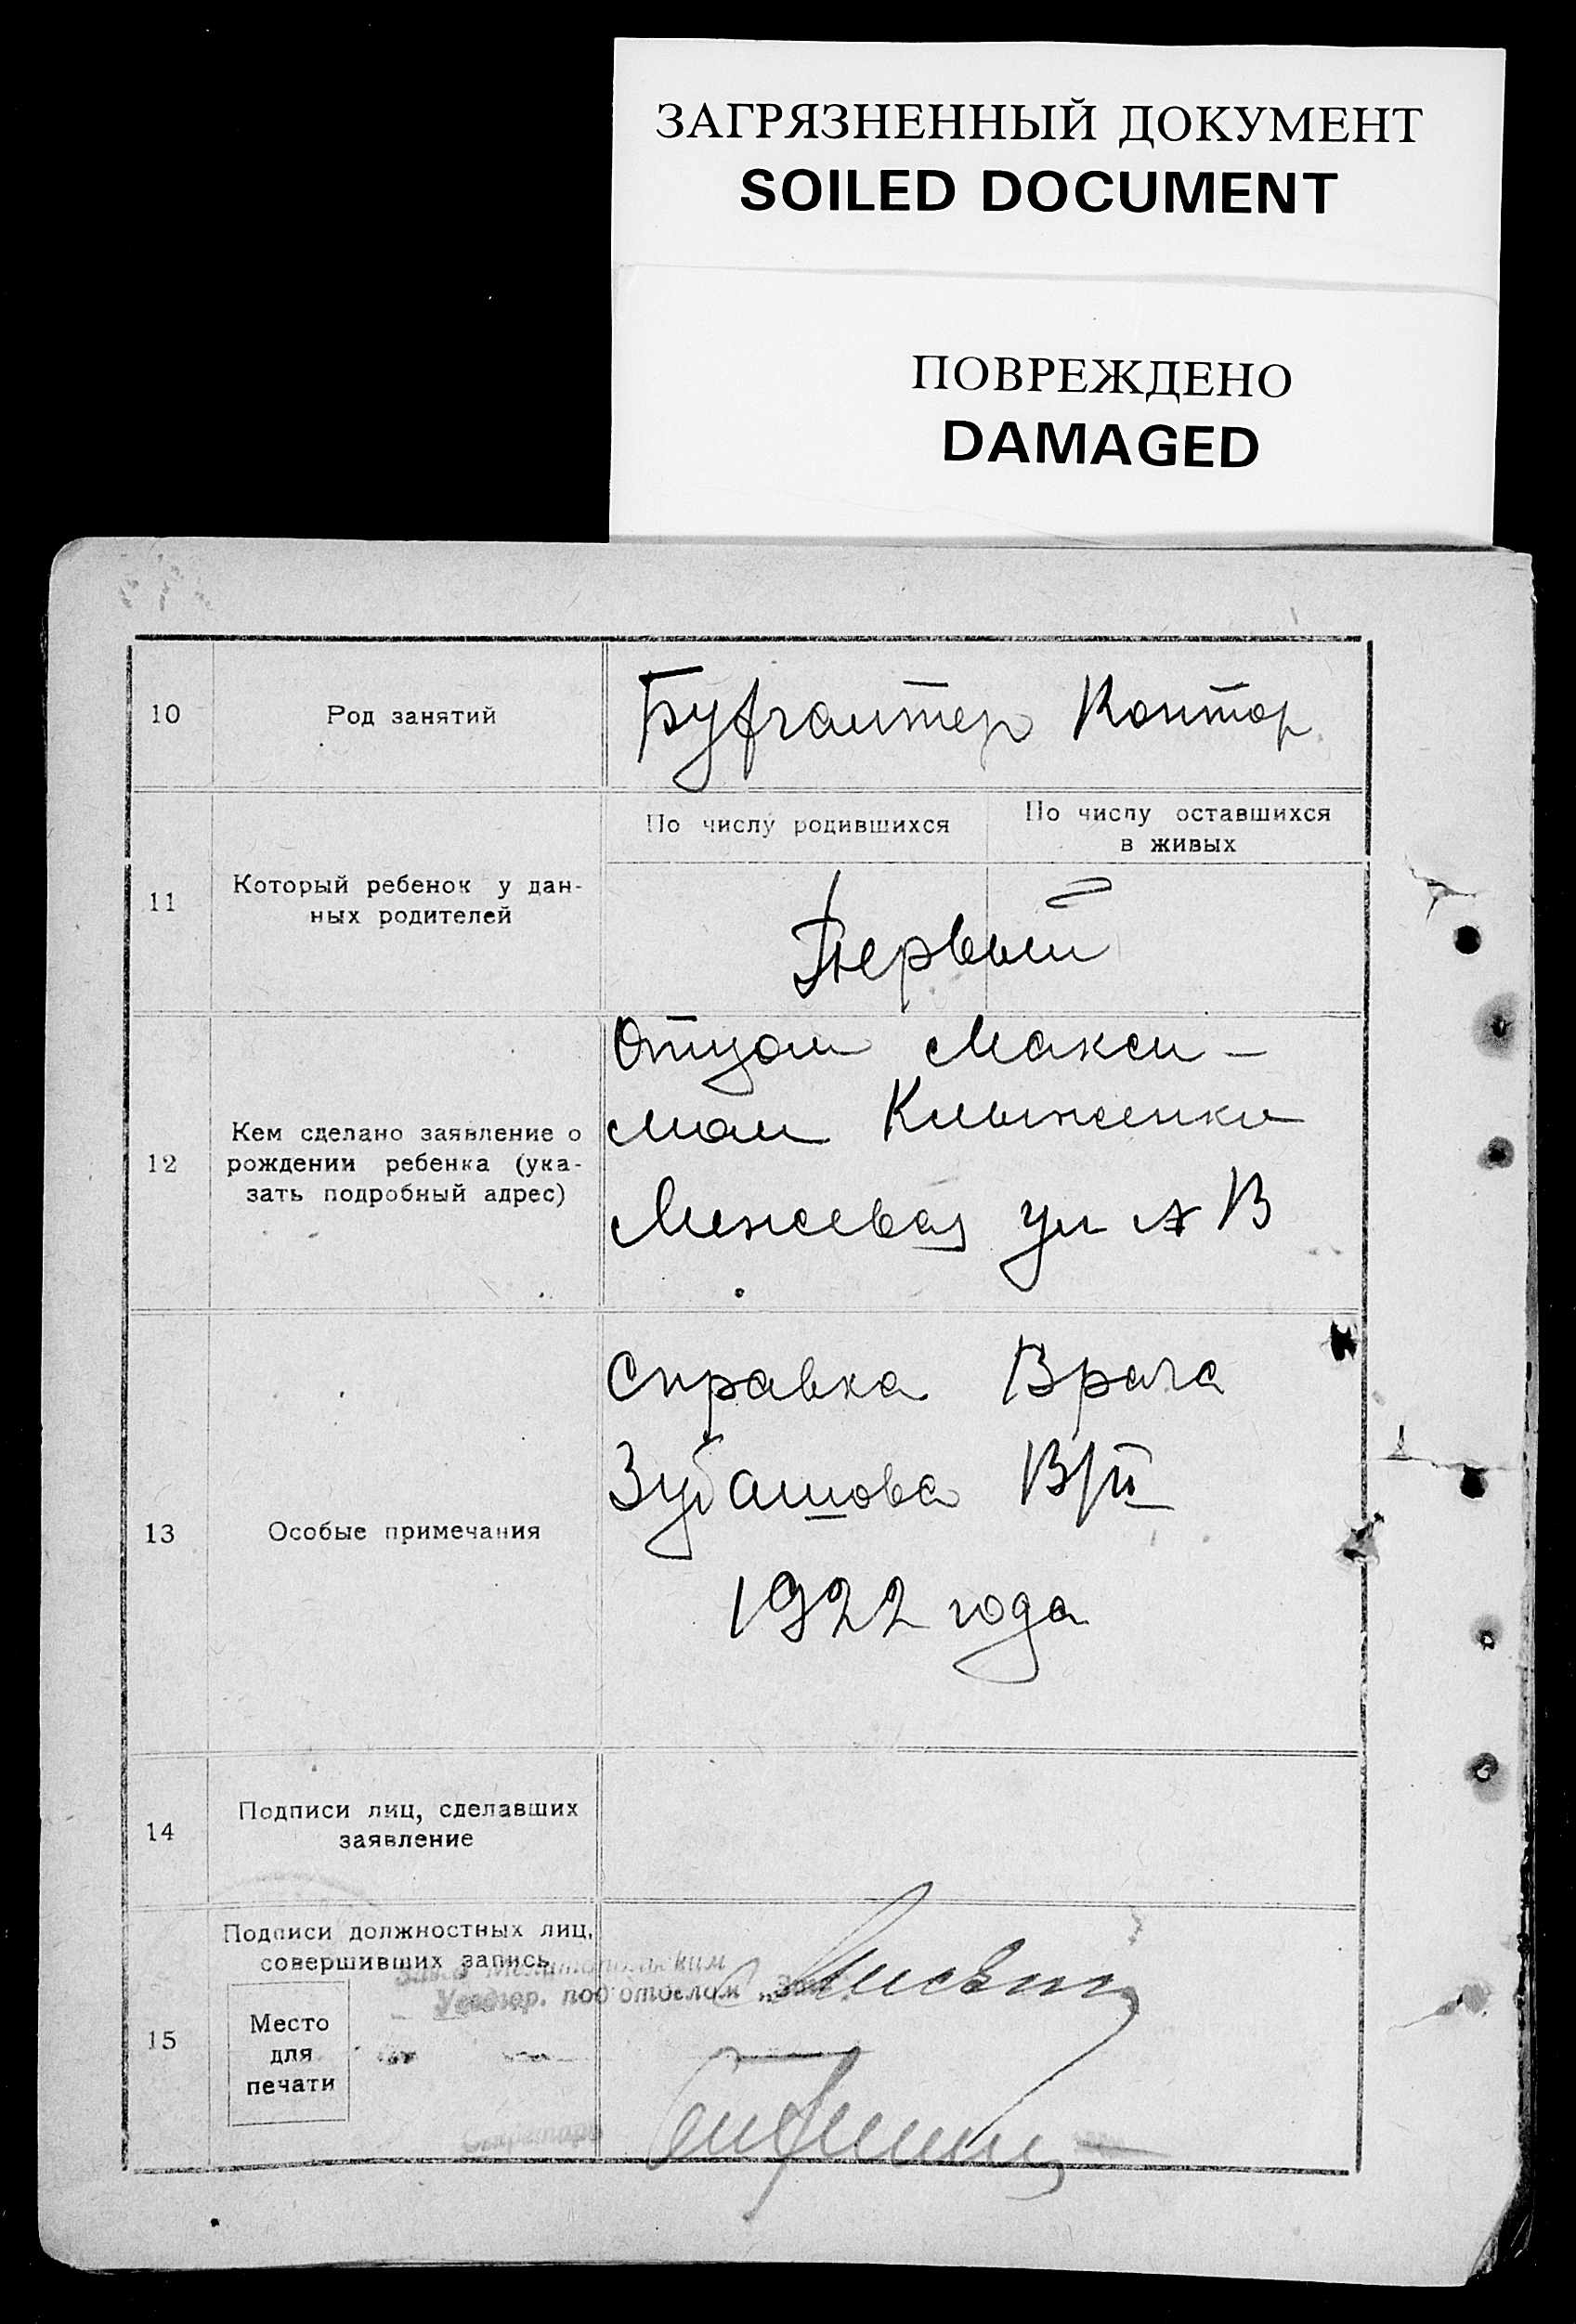 ЗАГРЯЗНЕННЫЙ ДОКУМЕНТ
SOILED DOCUMENT
ПОВРЕЖДЕНО
DAMAGED
10
Род занятий
Бухгалтер Контор.
11
Который ребенок у дан-
ных родителей
По числу родившихся
По числу оставшихся
в живых
Первый
12
Кем сделано заявление о
рождении ребенка (ука-
зать подробный адрес)
Отцом Макси-
мом
Межевая ул
13
Особые примечания
Справка Врача
Зубашова
1922 года
14
Подписи лиц, сделавших
заявление
15
Подписи должностных лиц,
совершивших запись
подотделом
Место
для
печати
Секретарь